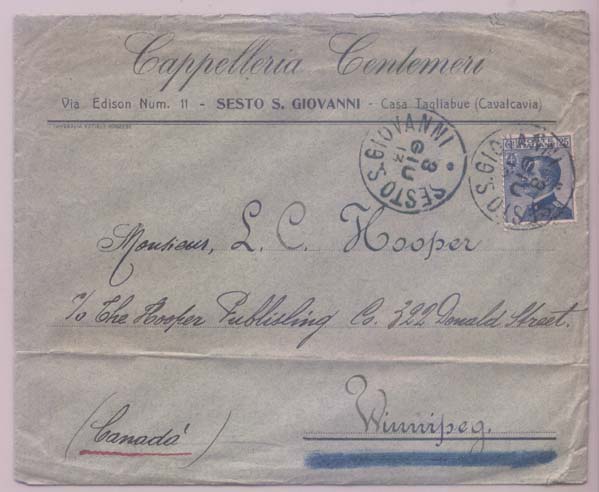 Cappelleria Centemeri
Via Edison Num. 11 - SESTO S. GIOVANNI - Casa Tagliabue (Cavalcavia)
SESTO S. GIOVANNI
8
GIU
13
SESTO S. GIOVANNI
25
Monsieur, L. C. Hooper
c/o The Hooper Publisling Co. 322 Donald Street.
Winnipeg.
(Canadà)